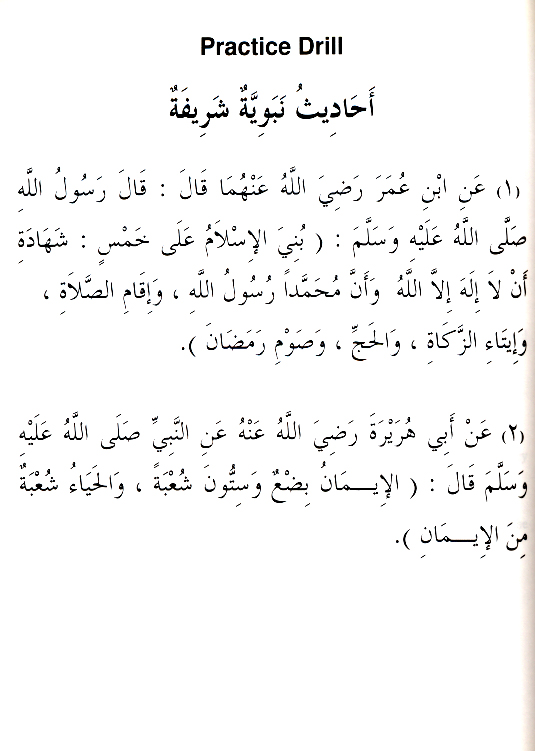 Practice Drill
أَحَادِيثُ نَبَوِيَّةٌ شَرِيفَةٌ
(١) عَنِ ابْنِ عُمَرَ رَضِيَ اللَّهُ عَنْهُمَا قَالَ : قَالَ رَسُولُ اللَّهِ
صَلَّى اللَّهُ عَلَيْهِ وَسَلَّمَ : ( بُنِيَ الإِسْلاَمُ عَلَى خَمْسٍ : شَهَادَةِ
أَنْ لاَ إِلَهَ إِلاَّ اللَّهُ وَأَنَّ مُحَمَّداً رَسُولُ اللَّهِ ، وَإِقَامِ الصَّلاَةِ ،
وَإِيتَاءِ الزَّكَاةِ ، وَالحَجِّ ، وَصَوْمِ رَمَضَانَ ).
(٢) عَنْ أَبِي هُرَيْرَةَ رَضِيَ اللَّهُ عَنْهُ عَنِ النَّبِيِّ صَلَى اللَّهُ عَلَيْهِ
وَسَلَّمَ قَالَ : ( الإِيـــمَانُ بِضْعٌ وَسِتُّونَ شُعْبَةً ، وَالحَيَاءُ شُعْبَةٌ
مِنَ الإِيـــمَانِ ).